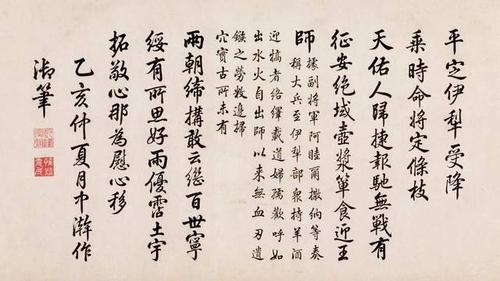 平定伊犁受降
乘時命將定條枝
天佑人歸捷報馳無戰有
征安絕域壺漿簞食迎王
師
據副將軍阿睦爾撒納等奏
稱大兵至伊犁部衆持羊酒
迎犒者絡繹載道婦孺歡呼如
出水火自出師以來無血刃遺
鏃之勞敉邊掃
穴實古所未有
兩朝締構敢云繼百世寧
綏有所思好雨優霑土宇
拓敬心那為慰心移
乙亥仲夏月中澣作
御筆